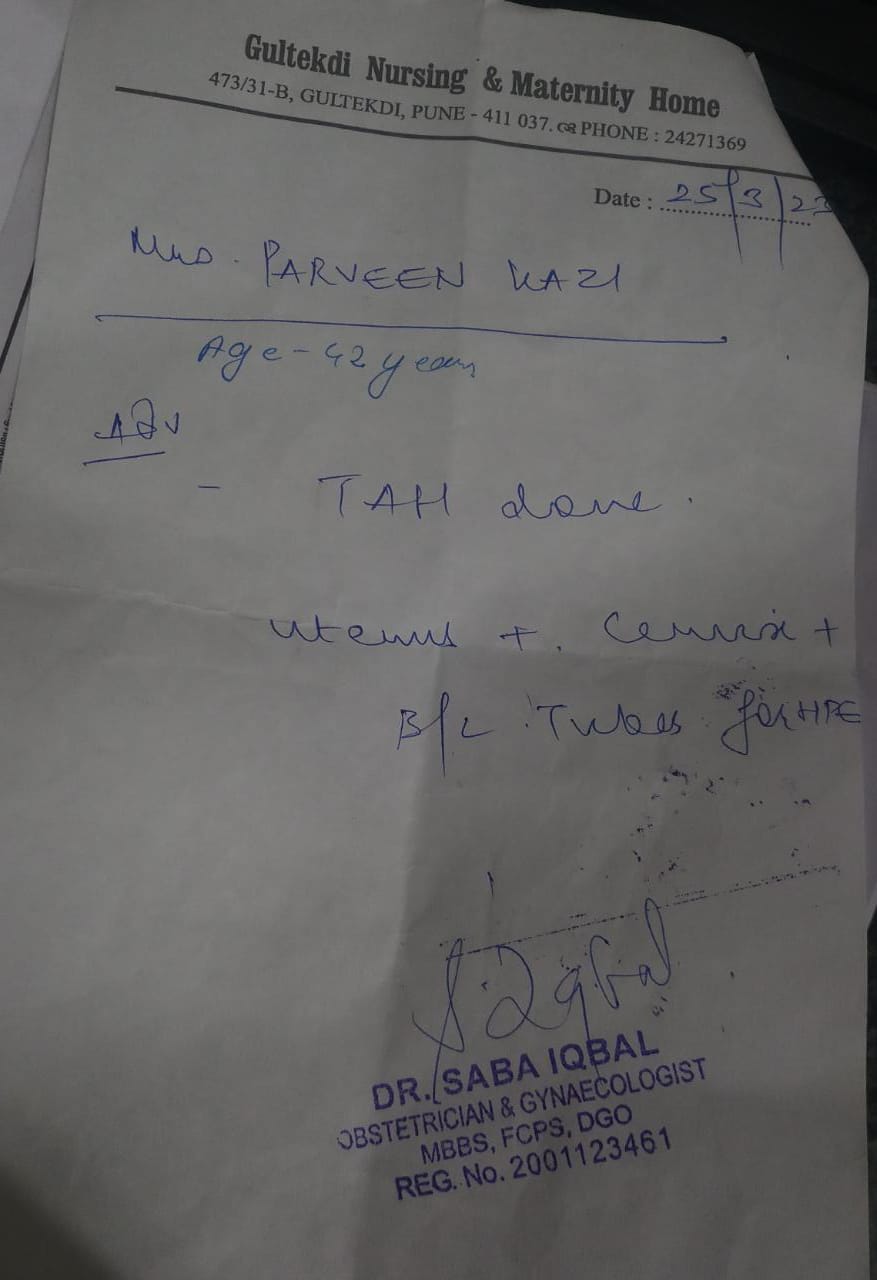 Gultekdi Nursing & Maternity Home
473/31-B, GULTEKDI, PUNE - 411 037. PHONE : 24271369
Date : 25/3/23
Mrs. PARVEEN KAZI
Age - 42 years
Adv
- TAH done.
uterus + Cervix +
B/L Tubes for HPE
S. Iqbal
DR. SABA IQBAL
OBSTETRICIAN & GYNAECOLOGIST
MBBS, FCPS, DGO
REG. No. 2001123461